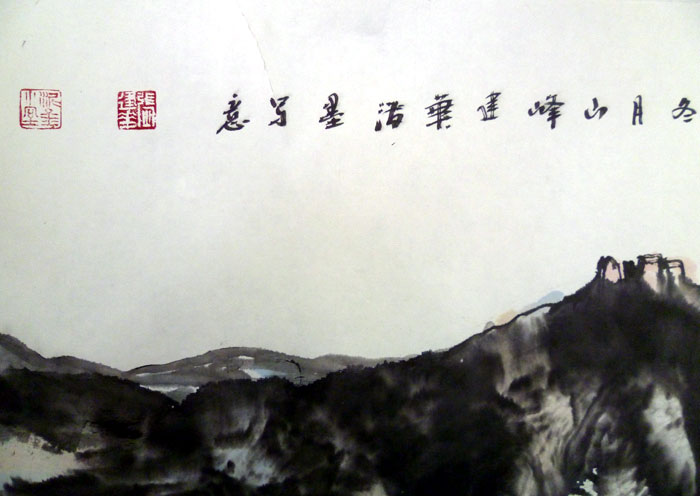 冬月山峰建華潑墨写意
張建華